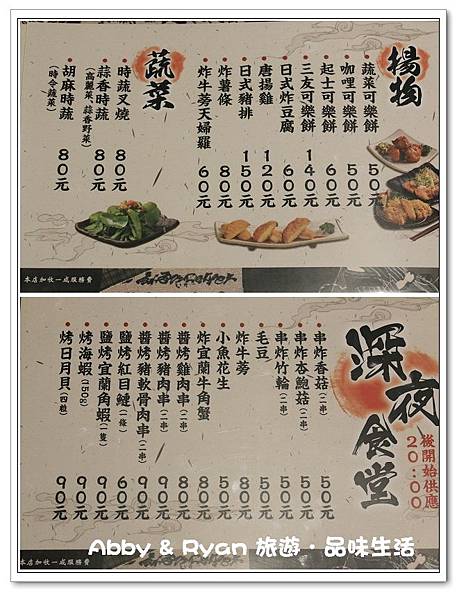 揚物
蔬菜可樂餅 50元
咖哩可樂餅 50元
起士可樂餅 60元
三友可樂餅 140元
日式炸豆腐 60元
唐揚雞 120元
日式豬排 150元
炸薯條 80元
炸牛蒡天婦羅 60元
蔬菜
時蔬叉燒 80元
蒜香時蔬 80元
(高麗菜、蒜香野菜)
胡麻時蔬 80元
(時令蔬菜)
本店加收一成服務費
深夜食堂
20:00
後開始供應
串炸香菇(二串) 50元
串炸杏鮑菇(二串) 50元
串炸竹輪(二串) 50元
毛豆 50元
炸牛蒡 80元
小魚花生 50元
炸宜蘭牛角蟹 80元
醬烤雞肉串(二串) 80元
醬烤豬肉串(二串) 80元
醬烤豬軟骨肉串(二串) 90元
鹽烤紅目鰱(一條) 60元
鹽烤宜蘭角蝦(一隻) 90元
烤海蝦(150g) 90元
烤日月貝(四粒) 90元
本店加收一成服務費
Abby & Ryan 旅遊·品味生活